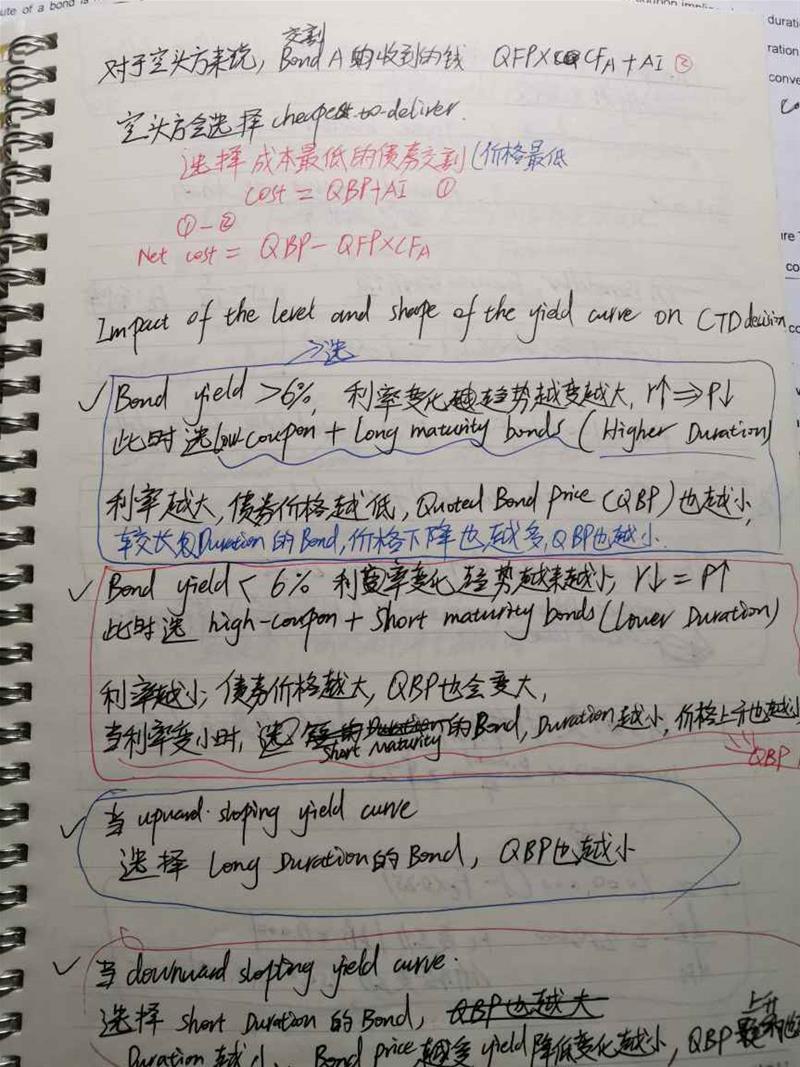 ute of a bond is
duratio
ration
conve
ire T
co
交割
对于空头方来说, Bond A 购收到的钱 QFP×CFA+AI ②
空头方会选择 cheapest-to-deliver.
选择成本最低的债券交割(价格最低
cost = QBP+AI ①
①-②
Net cost = QBP- QFP×CFA
Impact of the level and shape of the yield curve on CTD decision
>选
Bond yield >6%, 利率变化趋势越变越大, r↑⇒P↓
此时选 low coupon + long maturity bonds (Higher Duration)
利率越大, 债券价格越低, Quoted Bond Price (QBP) 也越小,
较长的Duration的Bond, 价格下降也越多, QBP也越小.
Bond yield < 6% 利率变化趋势越来越小, r↓ = P↑
此时选 high-coupon + Short maturity bonds (Lower Duration)
利率越小, 债券价格越大, QBP也会变大,
当利率变小时, 选 Short maturity 的Bond, Duration越小, 价格上升也越小
QBP
当 upward-sloping yield curve
选择 Long Duration的Bond, QBP也越小
当 downward slopting yield curve.
选择 short Duration 的Bond, QBP也越大
上升
Duration 越小, Bond price 越多 yield 降低变化越小, QBP